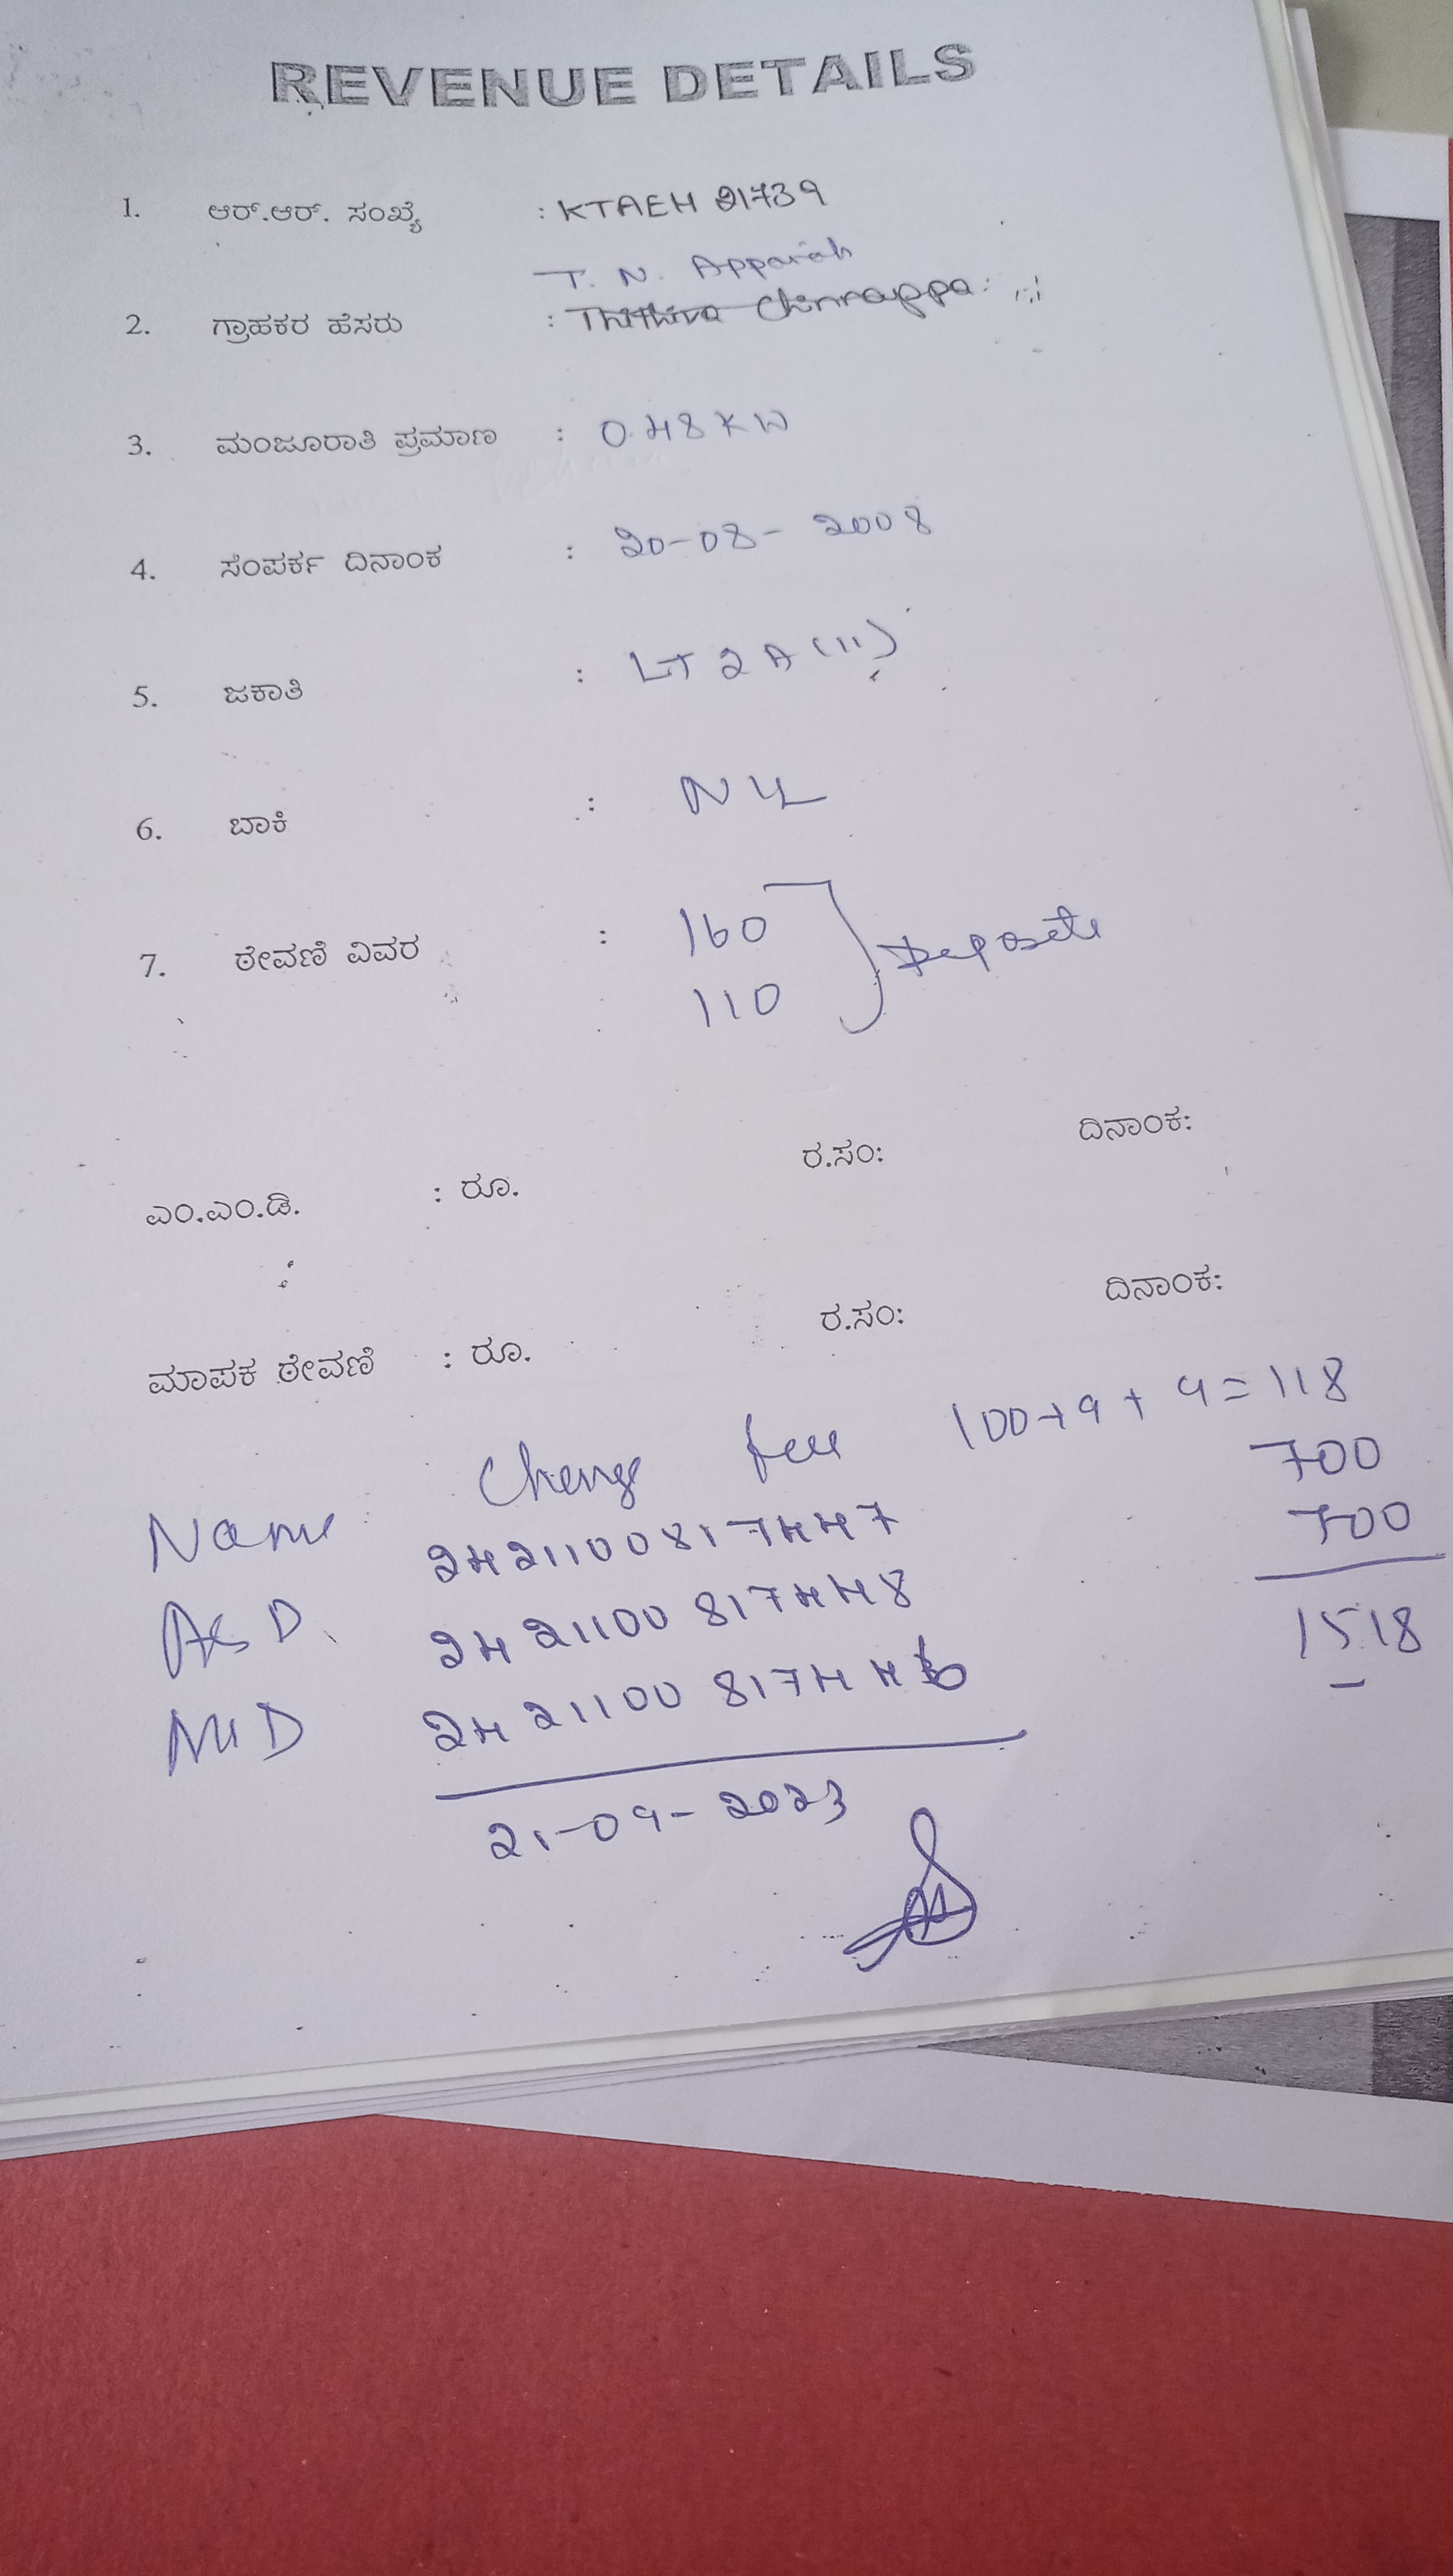 REVENUE DETAILS
1. ಆರ್.ಆರ್. ಸಂಖ್ಯೆ : KTAEH 21739
T. N. Appaiah
2. ಗ್ರಾಹಕರ ಹೆಸರು : Thithira Chinnappa
3. ಮಂಜೂರಾತಿ ಪ್ರಮಾಣ : 0.48 KW
4. ಸಂಪರ್ಕ ದಿನಾಂಕ : 20-08-2008
5. ಜಕಾತಿ : LT 2 A (11)
6. ಬಾಕಿ : NIL
7. ಠೇವಣಿ ವಿವರ : 160
110 Deposite
ಎಂ.ಎಂ.ಡಿ. : ರೂ. ರ.ಸಂ: ದಿನಾಂಕ:
ಮಾಪಕ ಠೇವಣಿ : ರೂ. ರ.ಸಂ: ದಿನಾಂಕ:
Name Change fee 100+9+9=118
2421100817447 700
ASD 2421100817448 700
MSD 2421100817446 1518
21-09-2023